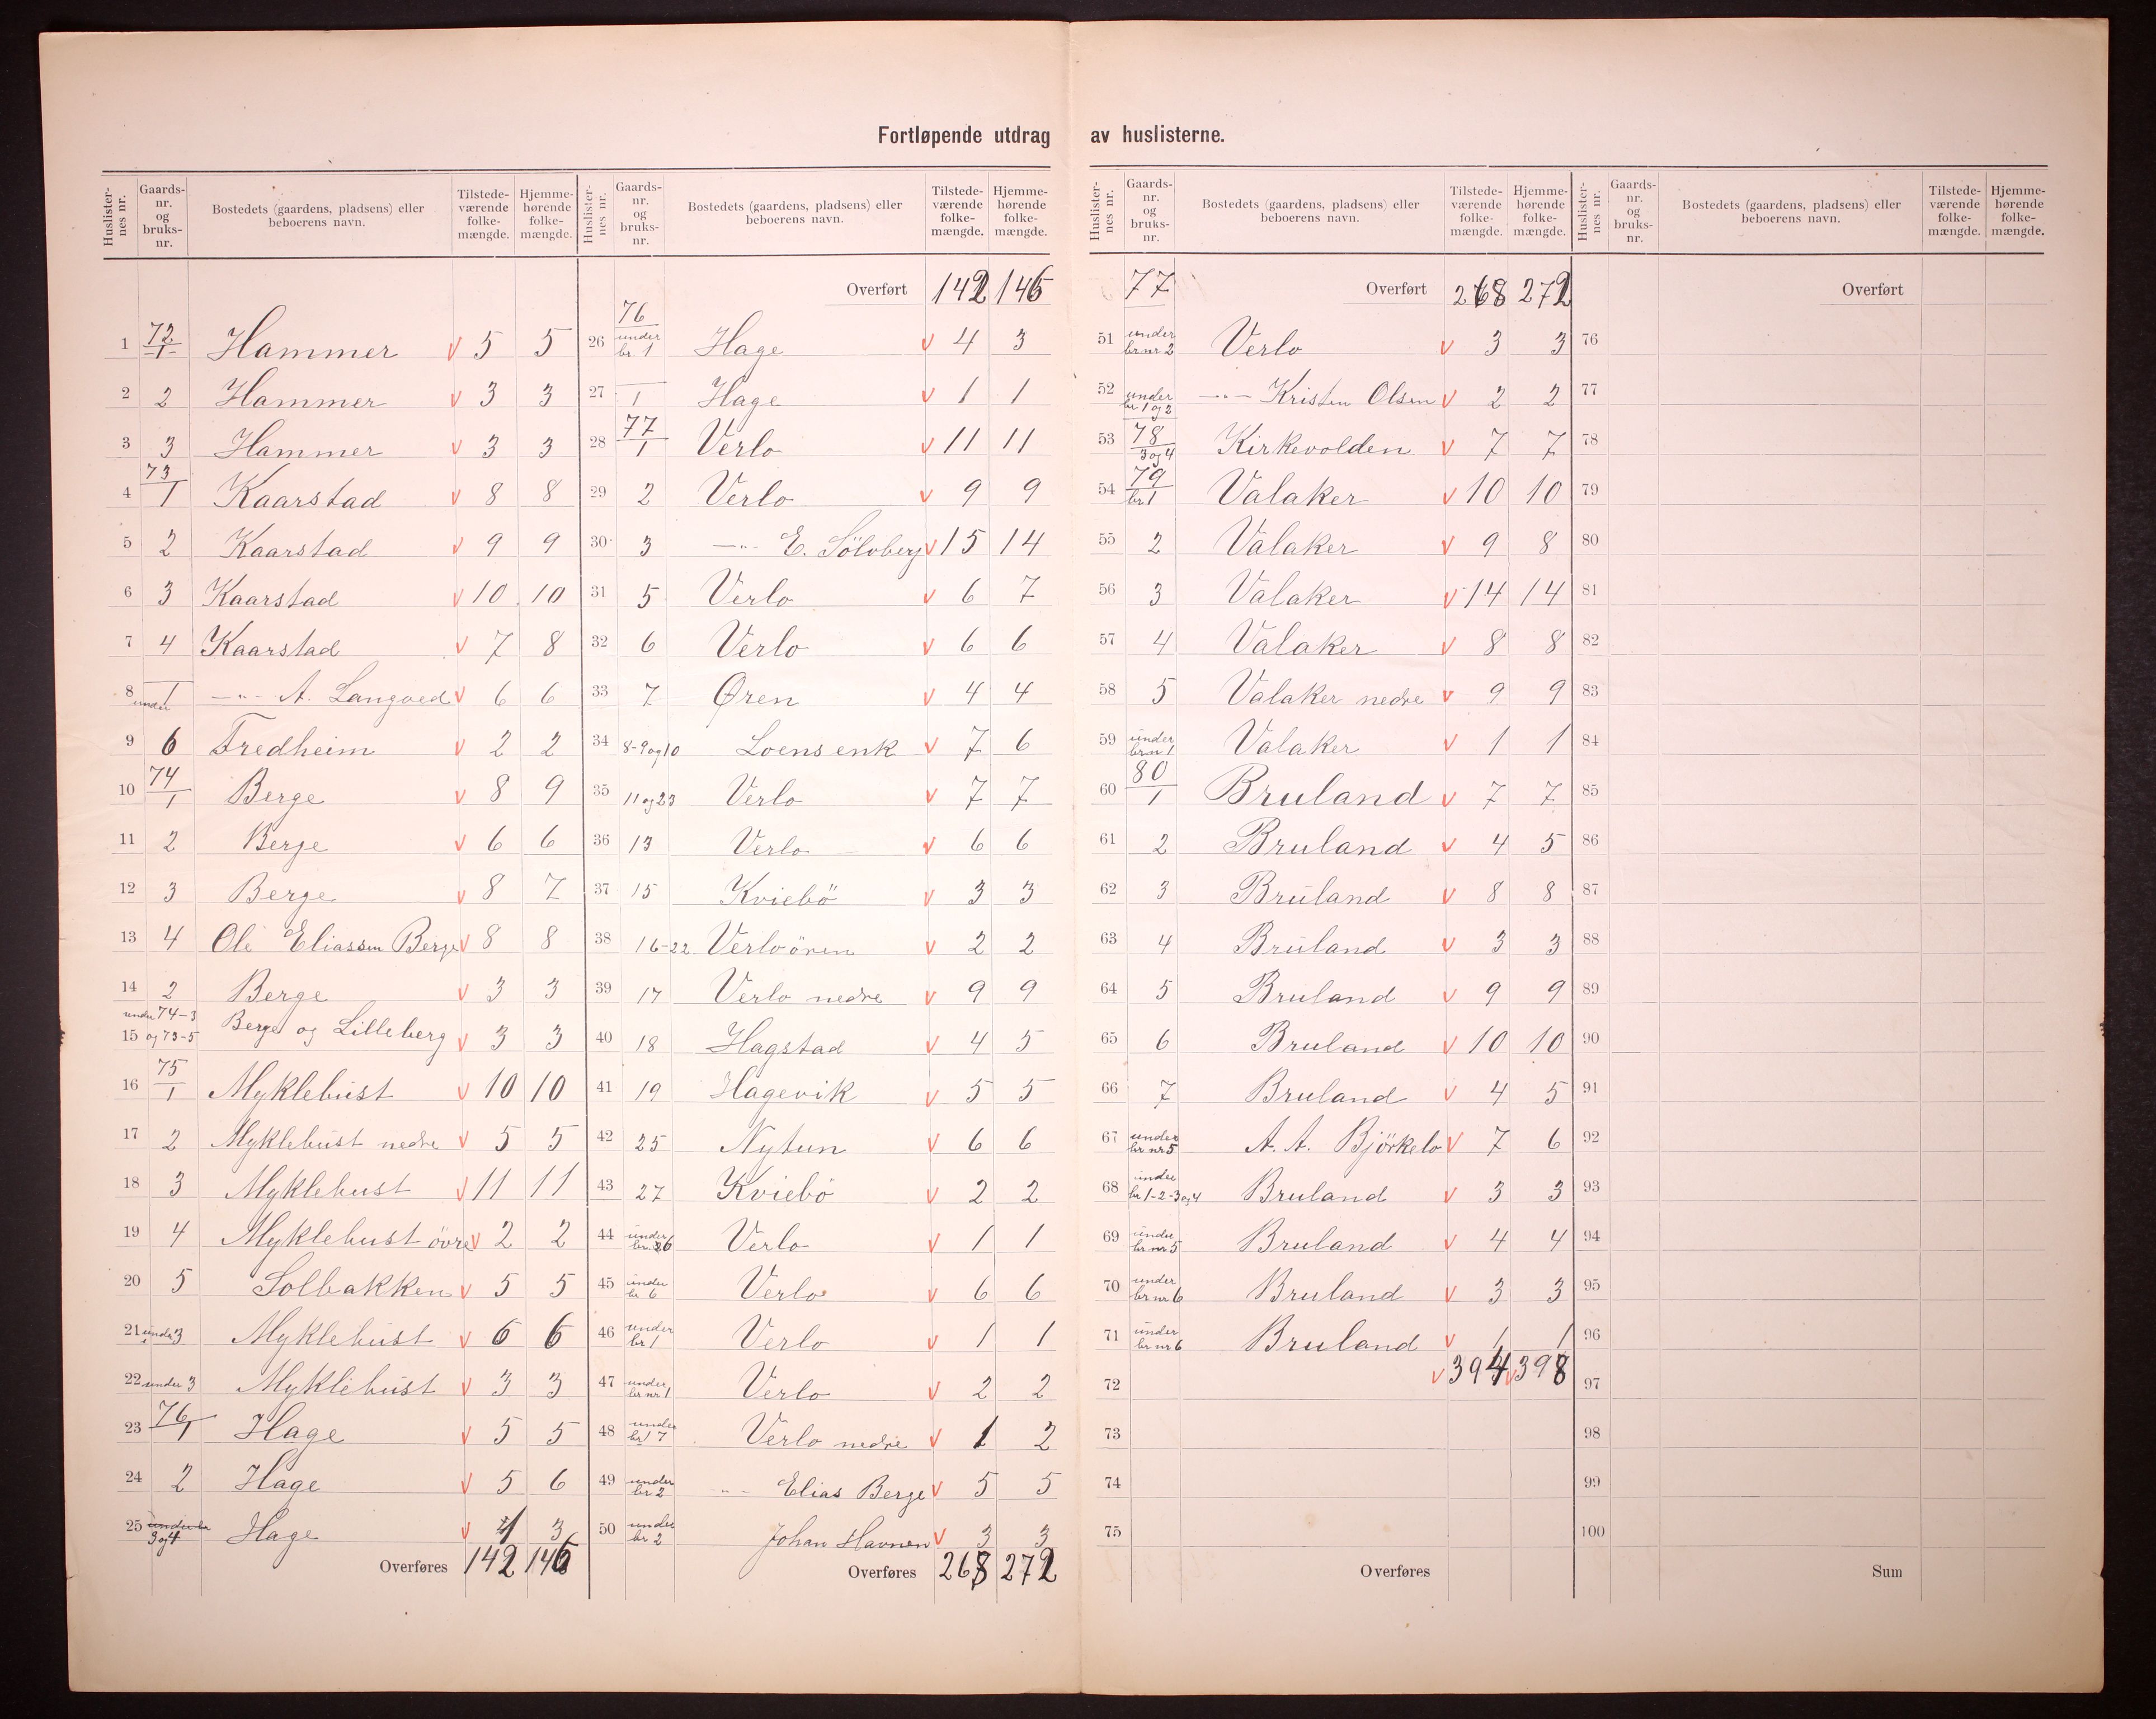 Fortløpende utdrag av huslisterne.
Huslisternes nr. Gaards-nr. og bruks-nr. Bostedets (gaardens, pladsens) eller beboerens navn. Tilstede-værende folke-mængde. Hjemme-hørende folke-mængde.
1 72/1 Hammer v 5 5
2 2 Hammer v 3 3
3 3 Hammer v 3 3
4 73/1 Kaarstad v 8 8
5 2 Kaarstad v 9 9
6 3 Kaarstad v 10 10
7 4 Kaarstad v 7 8
8 under 1 —"— A. Langved v 6 6
9 6 Fredheim v 2 2
10 74/1 Berge v 8 9
11 2 Berge v 6 6
12 3 Berge v 8 7
13 4 Ole Eliassen Berge v 8 8
14 2 Berge v 3 3
15 under 74-3 og 73-5 Berge og Lilleberg v 3 3
16 75/1 Myklebust v 10 10
17 2 Myklebust nedre v 5 5
18 3 Myklebust v 11 11
19 4 Myklebust övre v 2 2
20 5 Solbakken v 5 5
21 under 3 Myklebust v 6 6
22 under 3 Myklebust v 3 3
23 76/1 Hage v 5 5
24 2 Hage v 5 6
25 under br 3 og 4 Hage v 1 3
Overføres 142 146
Huslisternes nr. Gaards-nr. og bruks-nr. Bostedets (gaardens, pladsens) eller beboerens navn. Tilstede-værende folke-mængde. Hjemme-hørende folke-mængde.
Overført 142 146
26 76 under br. 1 Hage v 4 3
27 1 Hage v 1 1
28 77/1 Verlo v 11 11
29 2 Verlo v 9 9
30 3 —"— E. Sölvberg v 15 14
31 5 Verlo v 6 7
32 6 Verlo v 6 6
33 7 Øren v 4 4
34 8-9 og 10 Loensenk v 7 6
35 11 og 23 Verlo v 7 7
36 13 Verlo v 6 6
37 15 Kviebö v 3 3
38 16-22 Verloören v 2 2
39 17 Verlo nedre v 9 9
40 18 Hagstad v 4 5
41 19 Hagevik v 5 5
42 25 Nytun v 6 6
43 27 Kviebö v 2 2
44 under br. 26 Verlo v 1 1
45 under br 6 Verlo v 6 6
46 under br 1 Verlo v 1 1
47 under br nr 1 Verlo v 2 2
48 under br 17 Verlo nedre v 1 2
49 under br 2 —"— Elias Berge v 5 5
50 under br 2 Johan Havnen v 3 3
Overføres 268 272
Huslisternes nr. Gaards-nr. og bruks-nr. Bostedets (gaardens, pladsens) eller beboerens navn. Tilstede-værende folke-mængde. Hjemme-hørende folke-mængde.
77 Overført 268 272
51 under br nr 2 Verlo v 3 3
52 under br 1 og 2 —"— Kristen Olsen v 2 2
53 78/3 og 4 Kirkevolden v 7 7
54 79/br 1 Valaker v 10 10
55 2 Valaker v 9 8
56 3 Valaker v 14 14
57 4 Valaker v 8 8
58 5 Valaker nedre v 9 9
59 under br n 1 Valaker v 1 1
60 80/1 Bruland v 7 7
61 2 Bruland v 4 5
62 3 Bruland v 8 8
63 4 Bruland v 3 3
64 5 Bruland v 9 9
65 6 Bruland v 10 10
66 7 Bruland v 4 5
67 under br nr 5 A. A. Björkelo v 7 6
68 under br 1-2-3 og 4 Bruland v 3 3
69 under br nr 5 Bruland v 4 4
70 under br nr 6 Bruland v 3 3
71 under br nr 6 Bruland v 1 1
72 v 394 v 398
73
74
75
Overføres
Huslisternes nr. Gaards-nr. og bruks-nr. Bostedets (gaardens, pladsens) eller beboerens navn. Tilstede-værende folke-mængde. Hjemme-hørende folke-mængde.
Overført
76
77
78
79
80
81
82
83
84
85
86
87
88
89
90
91
92
93
94
95
96
97
98
99
100
Sum